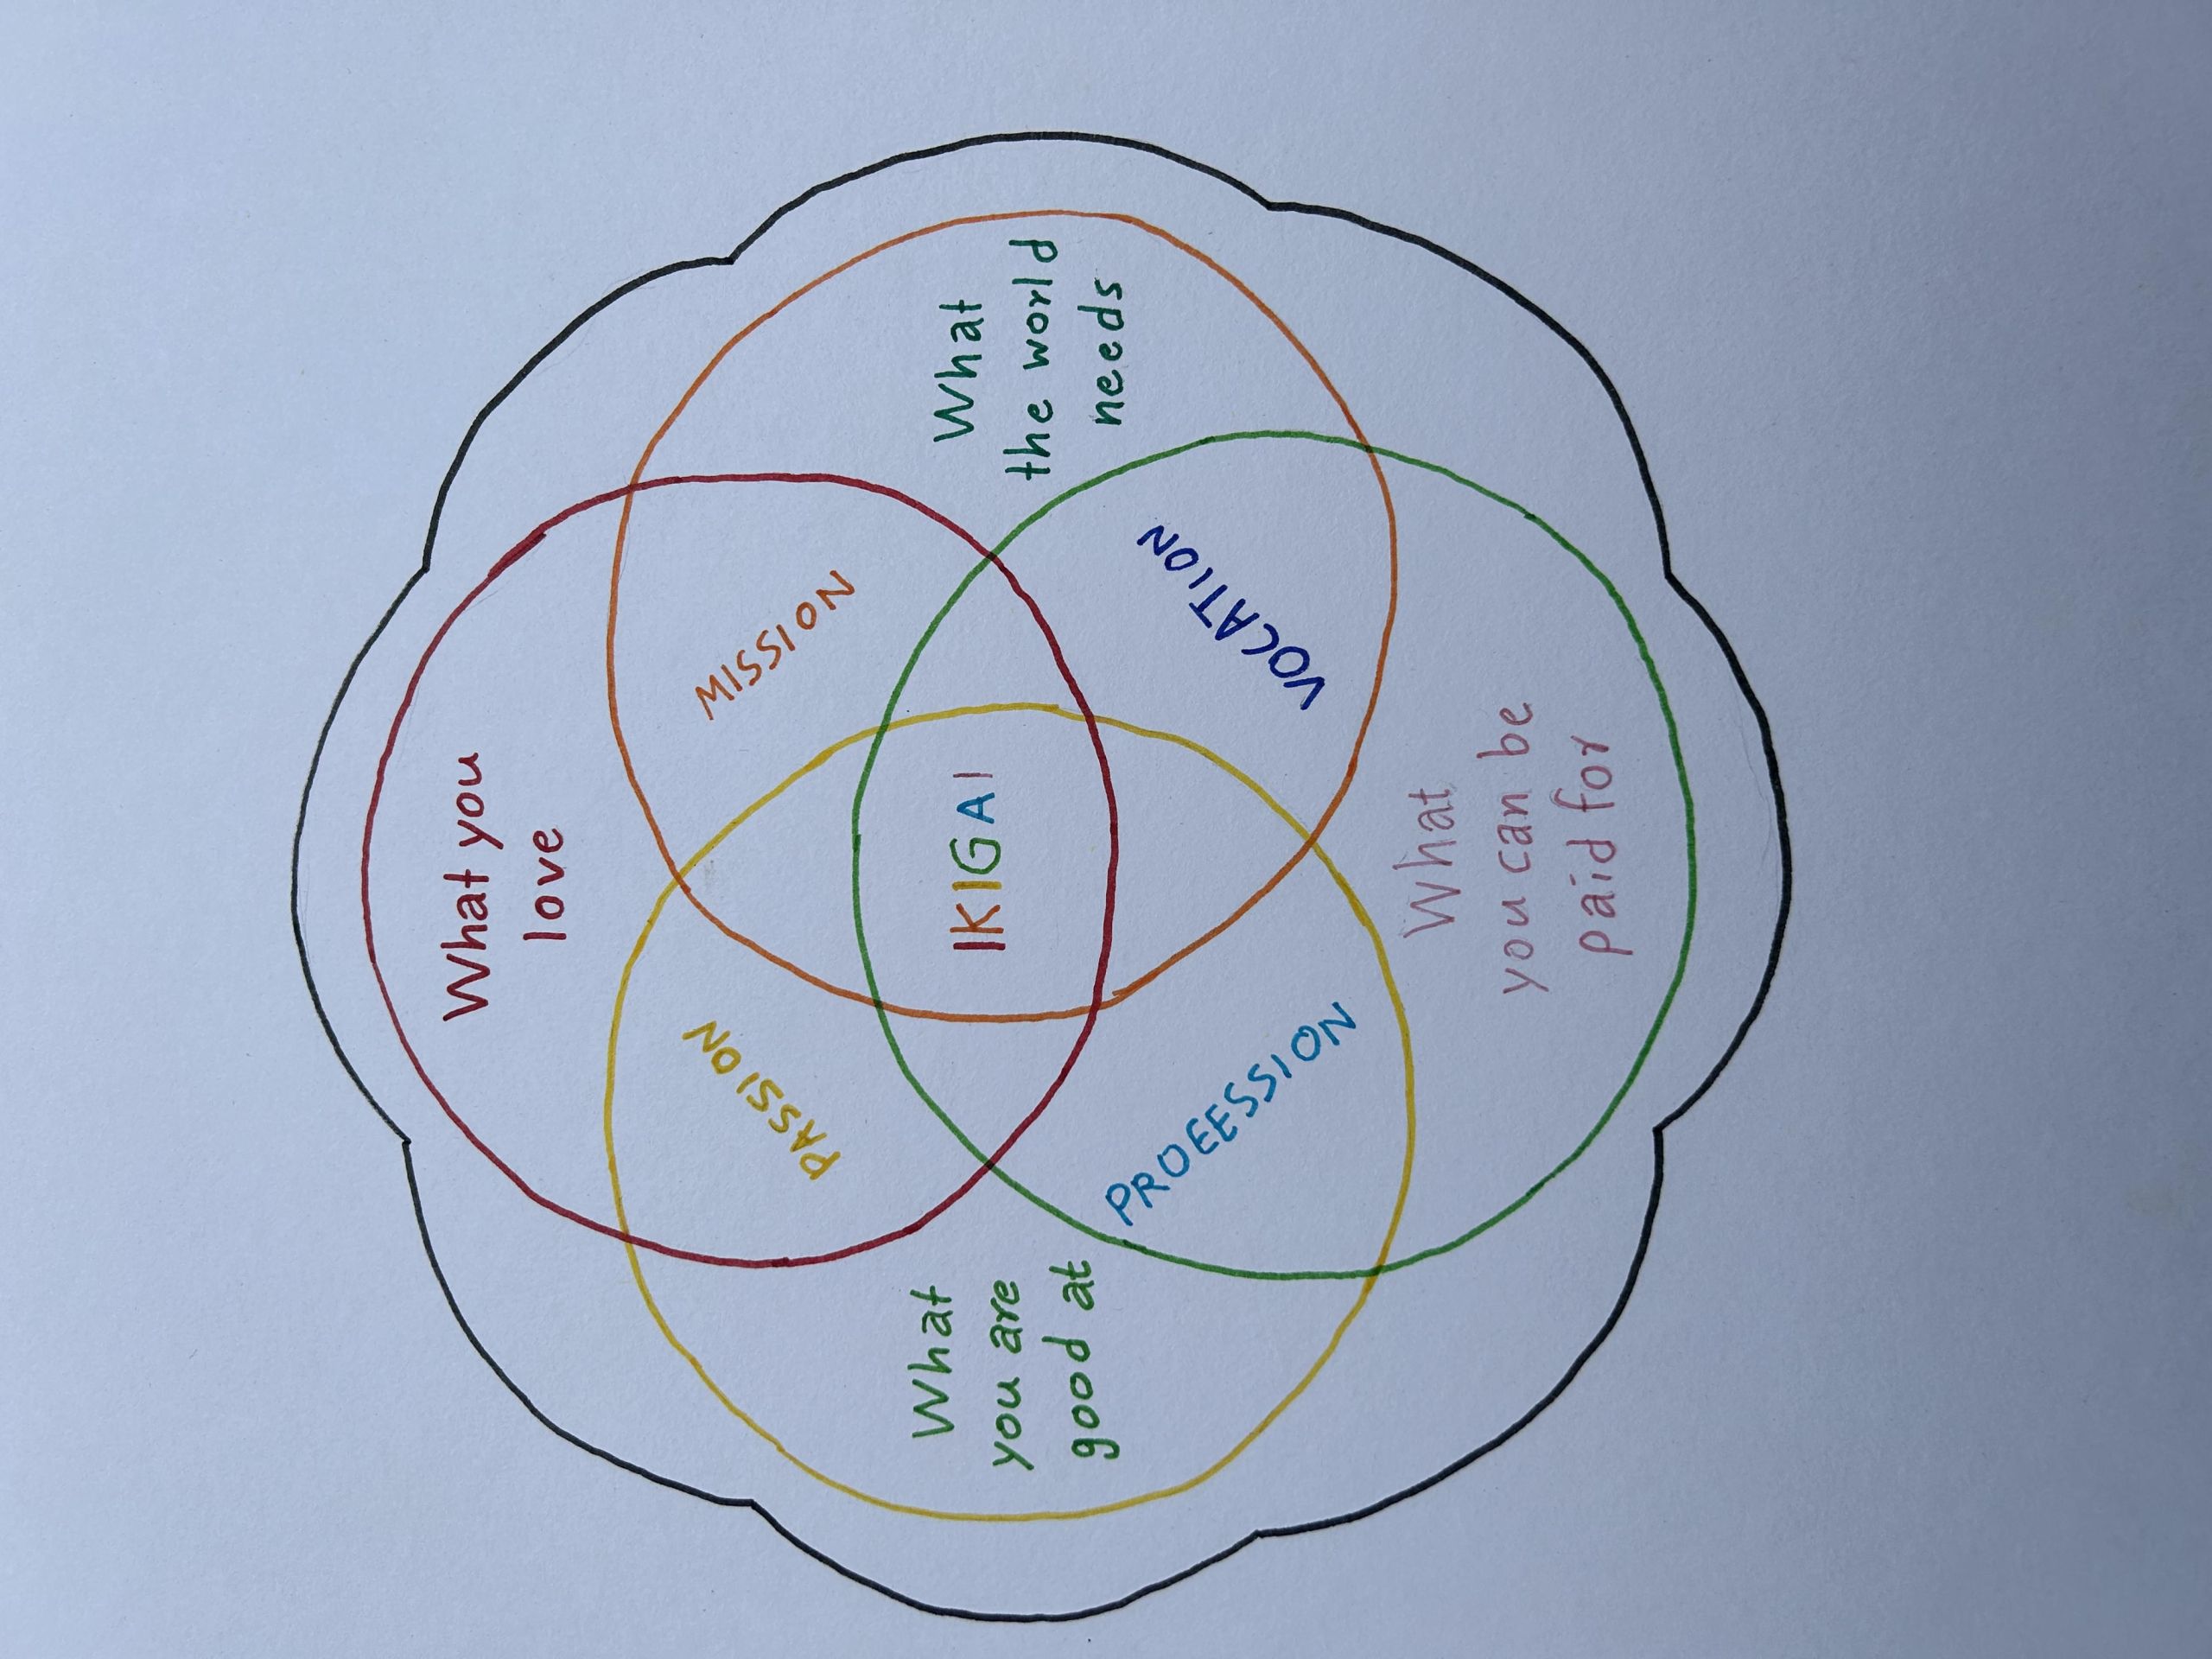 What you
love
PASSION
MISSION
What
you are
good at
IKIGAI
What
the world
needs
PROEESSION
VOCATION
What
you can be
paid for